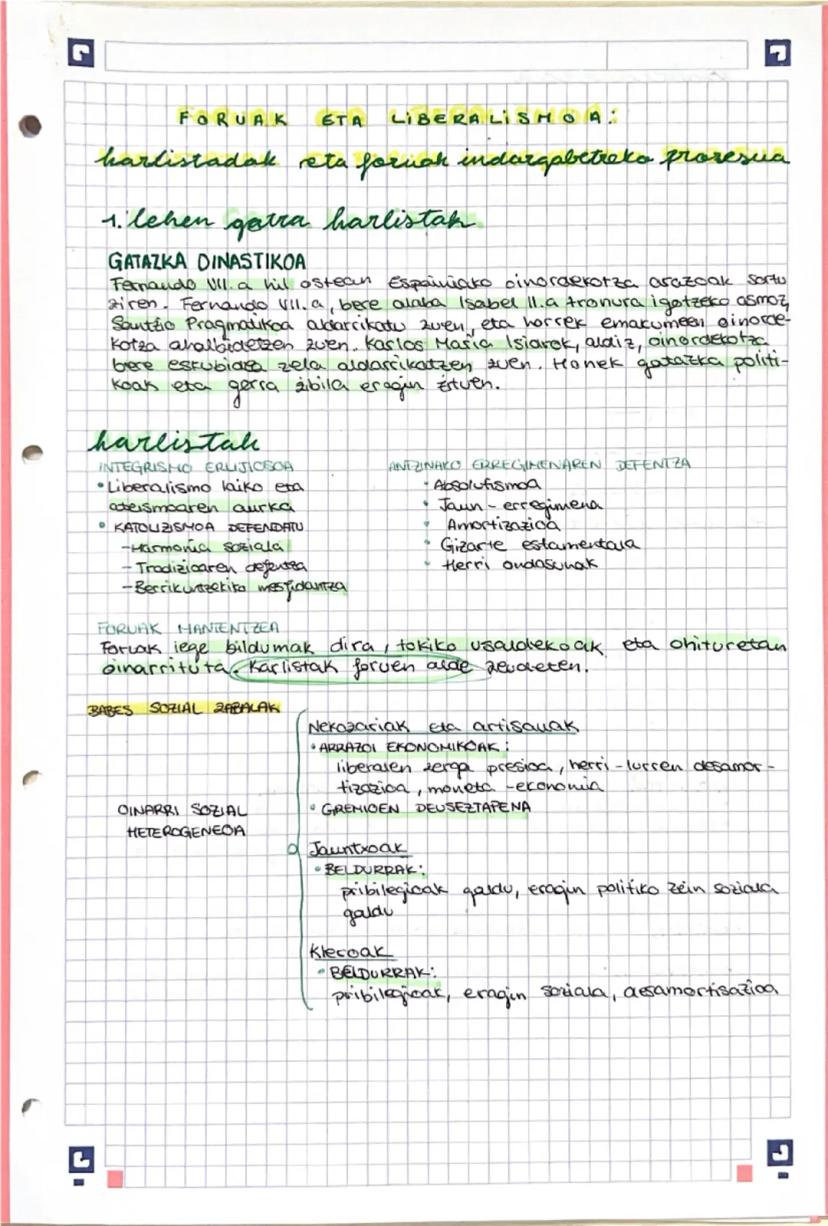 FORUAK ETA LIBERALISMOA:
karlistadak eta foruak indargabetzeko prozesua
1. lehen gerra karlistak
GATAZKA DINASTIKOA
Fernando VII.a hil ostean Espainiako oinordekotza arazoak sortu
ziren. Fernando VII.a, bere alaba Isabel II.a tronura igotzeko asmoz,
Santzio Pragmatikoa aldarrikatu zuen, eta horrek emakumeen oinorde-
kotza ahalbidetzen zuen. Karlos Maria Isiarok, aldiz, oinordekotza
bere eskubidea zela aldarrikatzen zuen. Honek gatazka politi-
koak eta gerra zibila eragin zituen.
karlistak
INTEGRISMO ERLIJIOSOA
• Liberalismo laiko eta
ateismoaren aurka
• KATOLIZISMOA DEFENDATU
- Harmonia soziala
- Tradizioaren defentsa
- Berrikuntzekiko mesfidantza
ANTZINAKO ERREGIMENAREN DEFENTZA
• Absolutismoa
• Jaun-erregimena
• Amortizazioa
• Gizarte estamentala
• Herri ondasunak
FORUAK MANTENTZEA
Foruak lege bildumak dira, tokiko usadiekoak eta ohituretan
oinarrituta. Karlistak foruen alde zeudeten.
BABES SOZIAL ZABALAK
OINARRI SOZIAL
HETEROGENEOA
Nekazariak eta artisauak
• ARRAZOI EKONOMIKOAK:
liberalen zerga presioa, herri-lurren desamor-
tizazioa, moneta-ekonomia
• GREMIOEN DEUSEZTAPENA
Jauntxoak
• BELDURRAK:
pribilegioak galdu, eragin politiko zein soziala
galdu
Kleroak
• BELDURRAK:
pribilegioak, eragin soziala, desamortisazioa